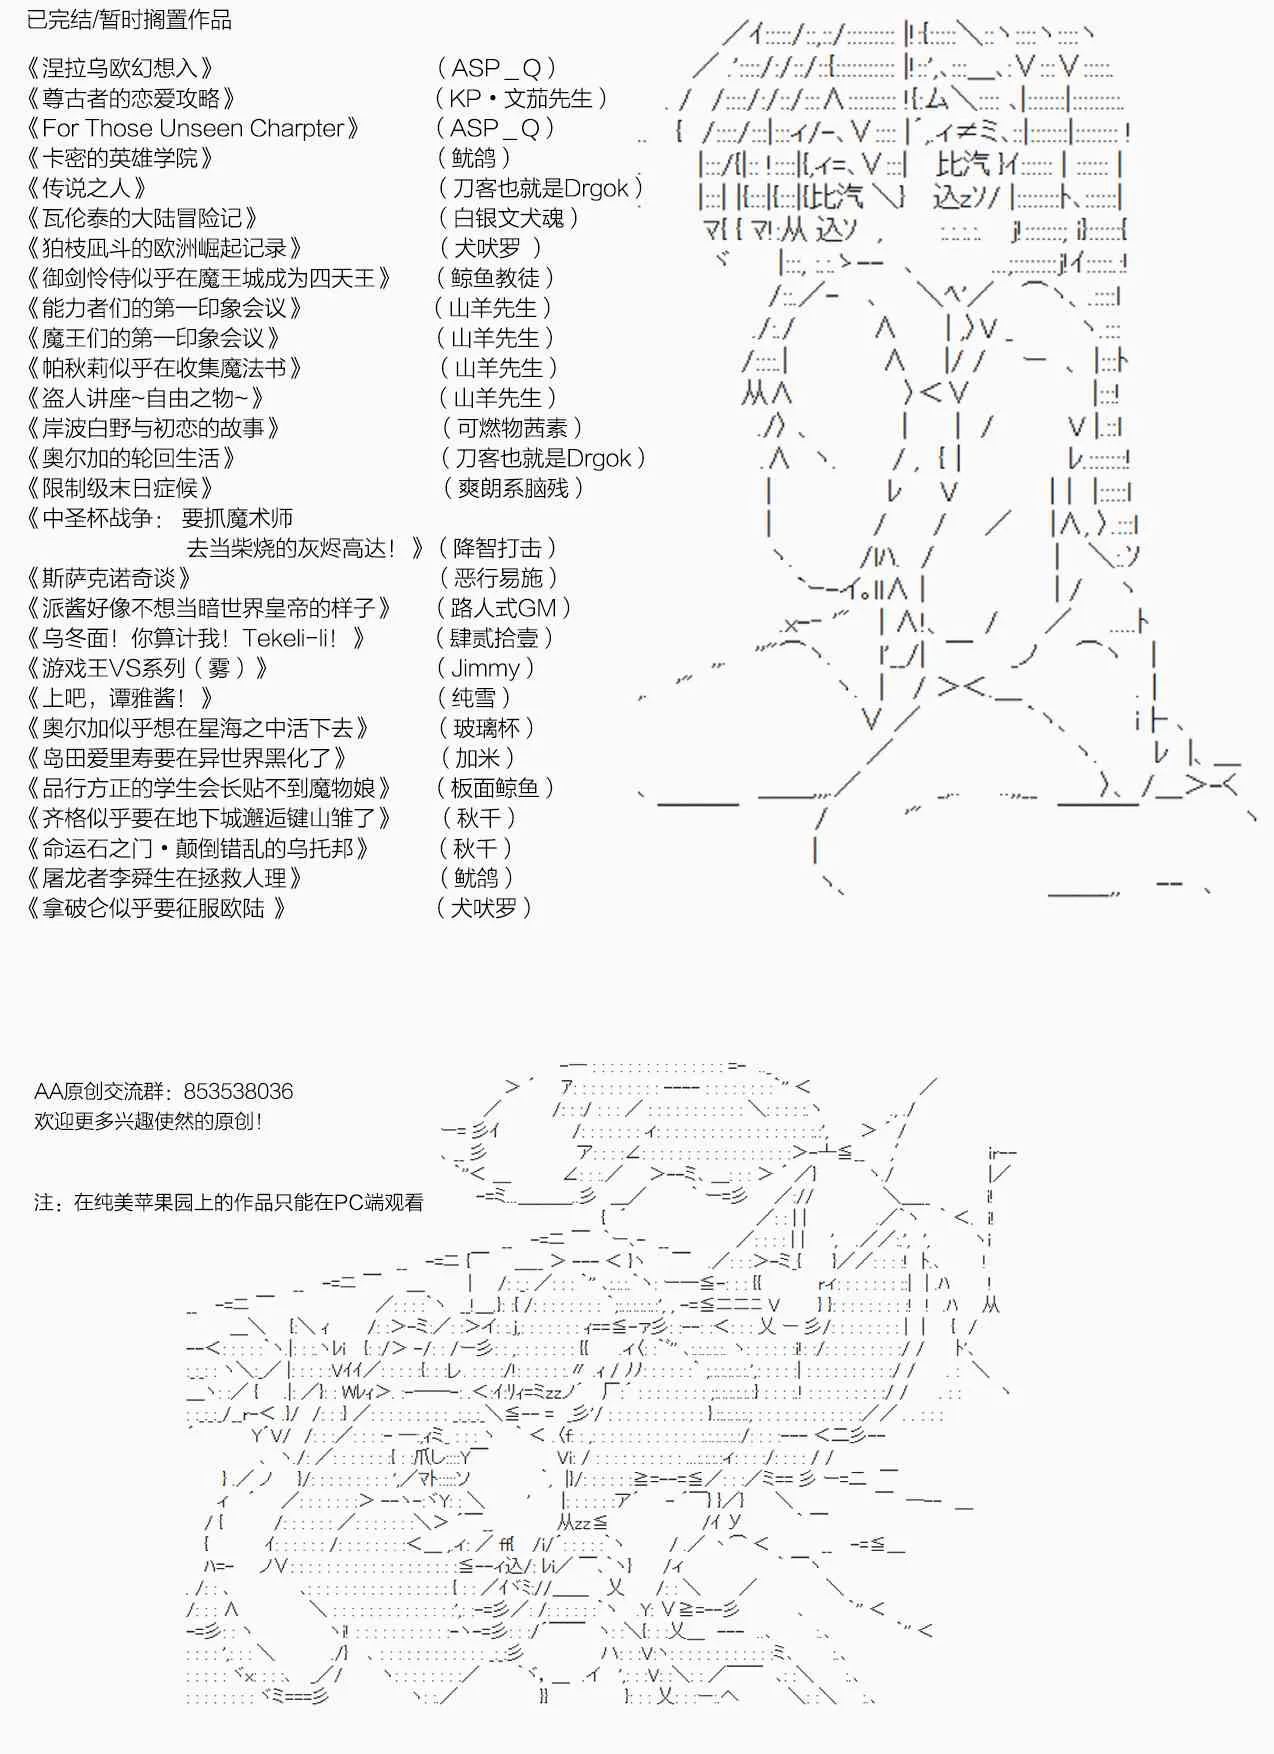 已完结/暂时搁置作品
《涅拉乌欧幻想入》 （ASP_Q）
《尊古者的恋爱攻略》 （KP·文茄先生）
《For Those Unseen Charpter》 （ASP_Q）
《卡密的英雄学院》 （鱿鸽）
《传说之人》 （刀客也就是Drgok）
《瓦伦泰的大陆冒险记》 （白银文犬魂）
《狛枝凪斗的欧洲崛起记录》 （犬吠罗 ）
《御剑怜侍似乎在魔王城成为四天王》 （鲸鱼教徒）
《能力者们的第一印象会议》 （山羊先生）
《魔王们的第一印象会议》 （山羊先生）
《帕秋莉似乎在收集魔法书》 （山羊先生）
《盗人讲座~自由之物~》 （山羊先生）
《岸波白野与初恋的故事》 （可燃物茜素）
《奥尔加的轮回生活》 （刀客也就是Drgok）
《限制级末日症候》 （爽朗系脑残）
《中圣杯战争： 要抓魔术师
去当柴烧的灰烬高达！》（降智打击）
《斯萨克诺奇谈》 （恶行易施）
《派酱好像不想当暗世界皇帝的样子》 （路人式GM）
《乌冬面！你算计我！Tekeli-li！》 （肆贰拾壹）
《游戏王VS系列（雾）》 （Jimmy）
《上吧，谭雅酱！》 （纯雪）
《奥尔加似乎想在星海之中活下去》 （玻璃杯）
《岛田爱里寿要在异世界黑化了》 （加米）
《品行方正的学生会长贴不到魔物娘》 （板面鲸鱼）
《齐格似乎要在地下城邂逅键山雏了》 （秋千）
《命运石之门·颠倒错乱的乌托邦》 （秋千）
《屠龙者李舜生在拯救人理》 （鱿鸽）
《拿破仑似乎要征服欧陆 》 （犬吠罗）
AA原创交流群：853538036
欢迎更多兴趣使然的原创！
注：在纯美苹果园上的作品只能在PC端观看